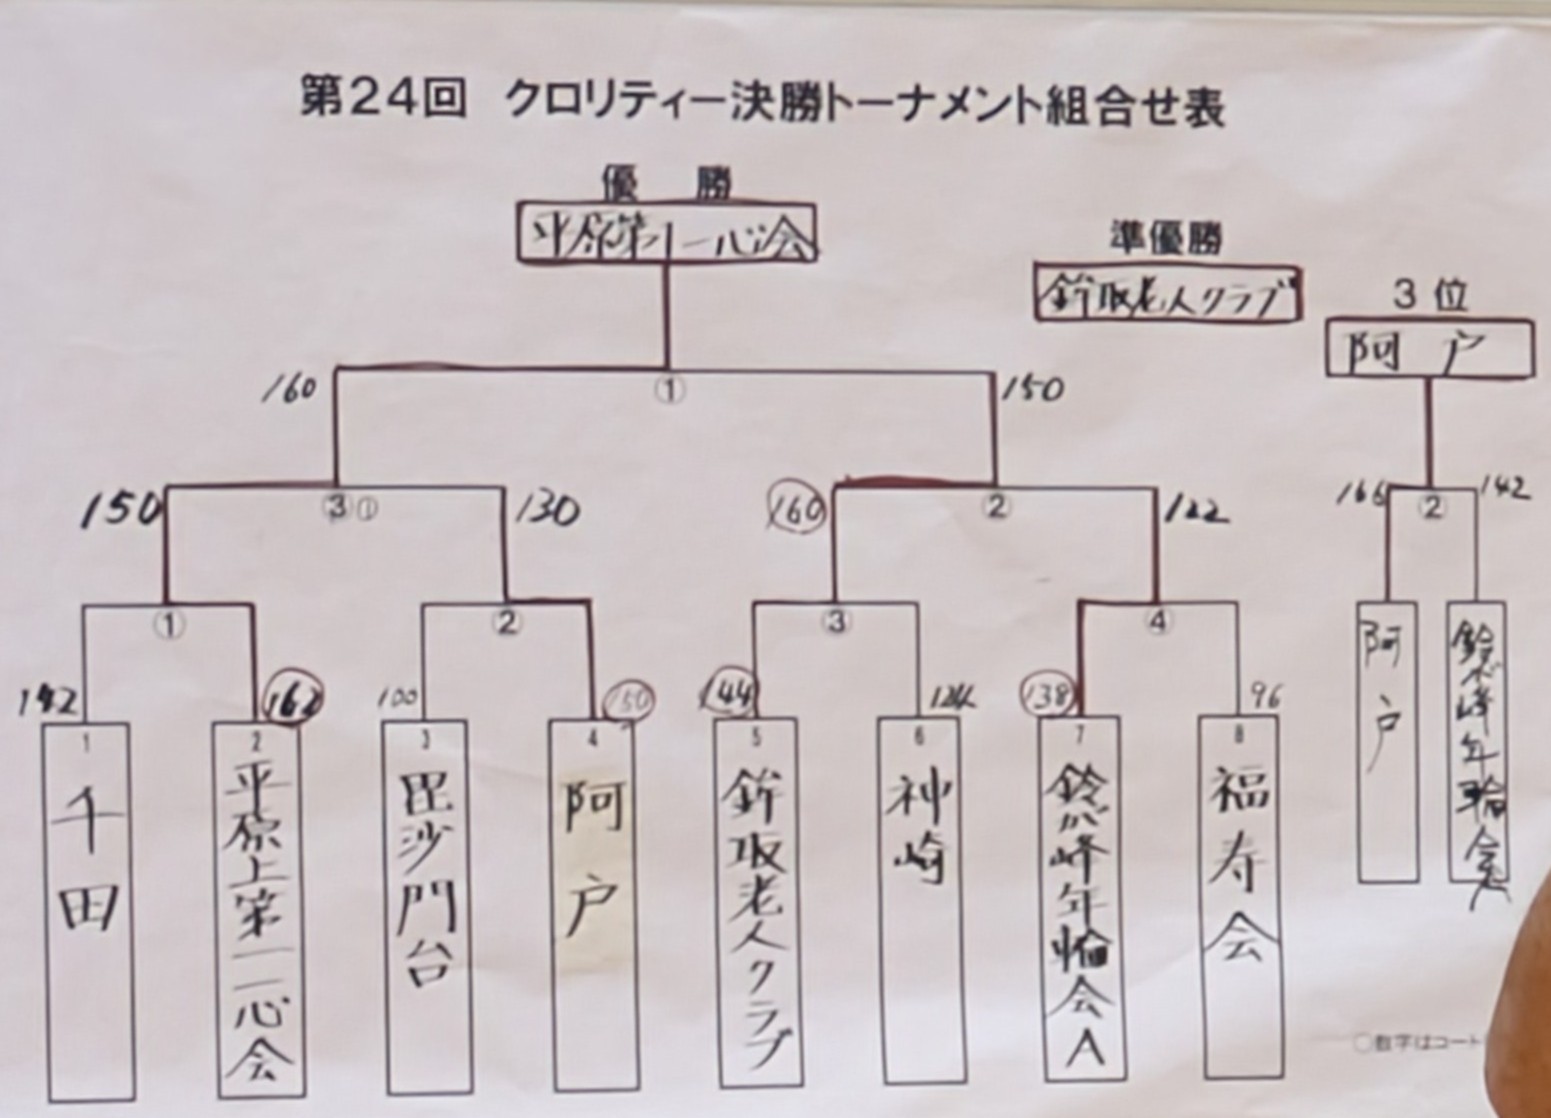 第24回 クロリティー決勝トーナメント組合せ表
優 勝
準優勝
鉾取老人クラブ
3 位
阿 戸
160
①
150
150
③①
130
160
②
122
166
②
142
①
②
③
④
142
162
100
150
144
124
138
96
1
千田
2
平原上第一一心会
3
毘沙門台
4
阿戸
5
鉾取老人クラブ
6
神崎
7
鈴が峰年輪会A
8
福寿会
阿戸
鈴が峰年輪会A
○数字はコート